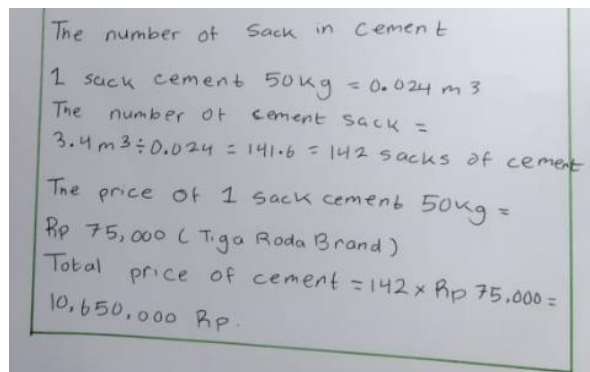 The number of Sack in Cement
1 sack cement 50kg = 0.024 m3
The number of cement sack =
3.4 m3 ÷ 0.024 = 141.6 = 142 sacks of cement
The price of 1 sack cement 50kg =
Rp 75,000 ( Tiga Roda Brand )
Total price of cement = 142 x Rp 75,000 =
10,650,000 Rp.